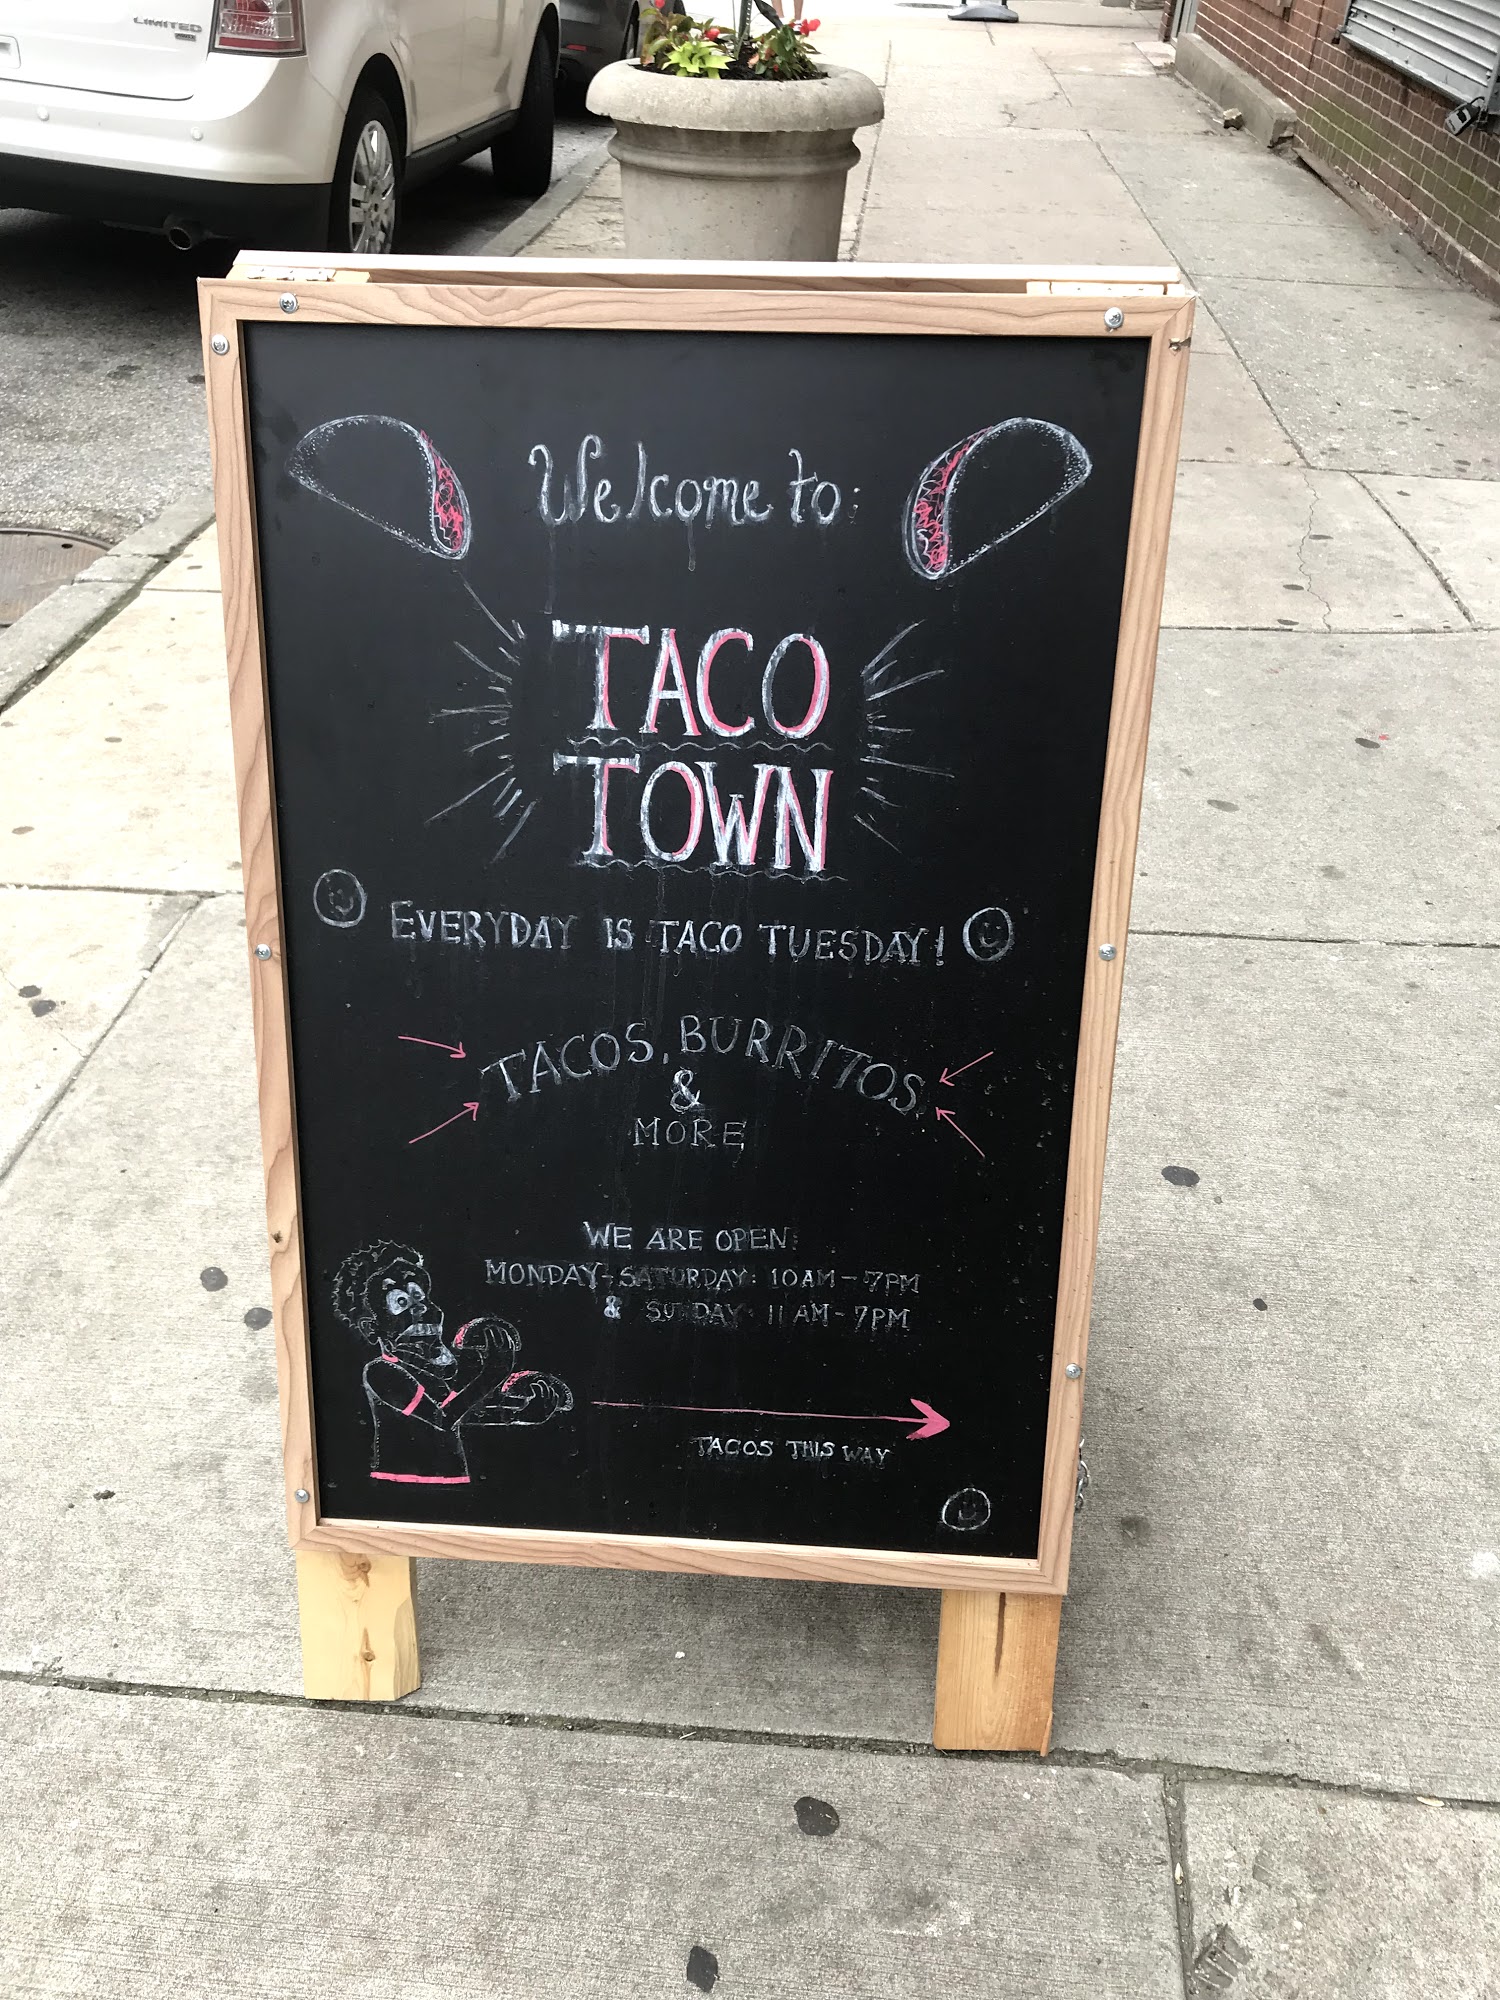 LIMITED
Welcome to:
TACO
TOWN
EVERYDAY IS TACO TUESDAY!
TACOS, BURRITOS
&
MORE
WE ARE OPEN:
MONDAY-SATURDAY: 10AM-7PM
& SUNDAY: 11AM-7PM
TACOS THIS WAY